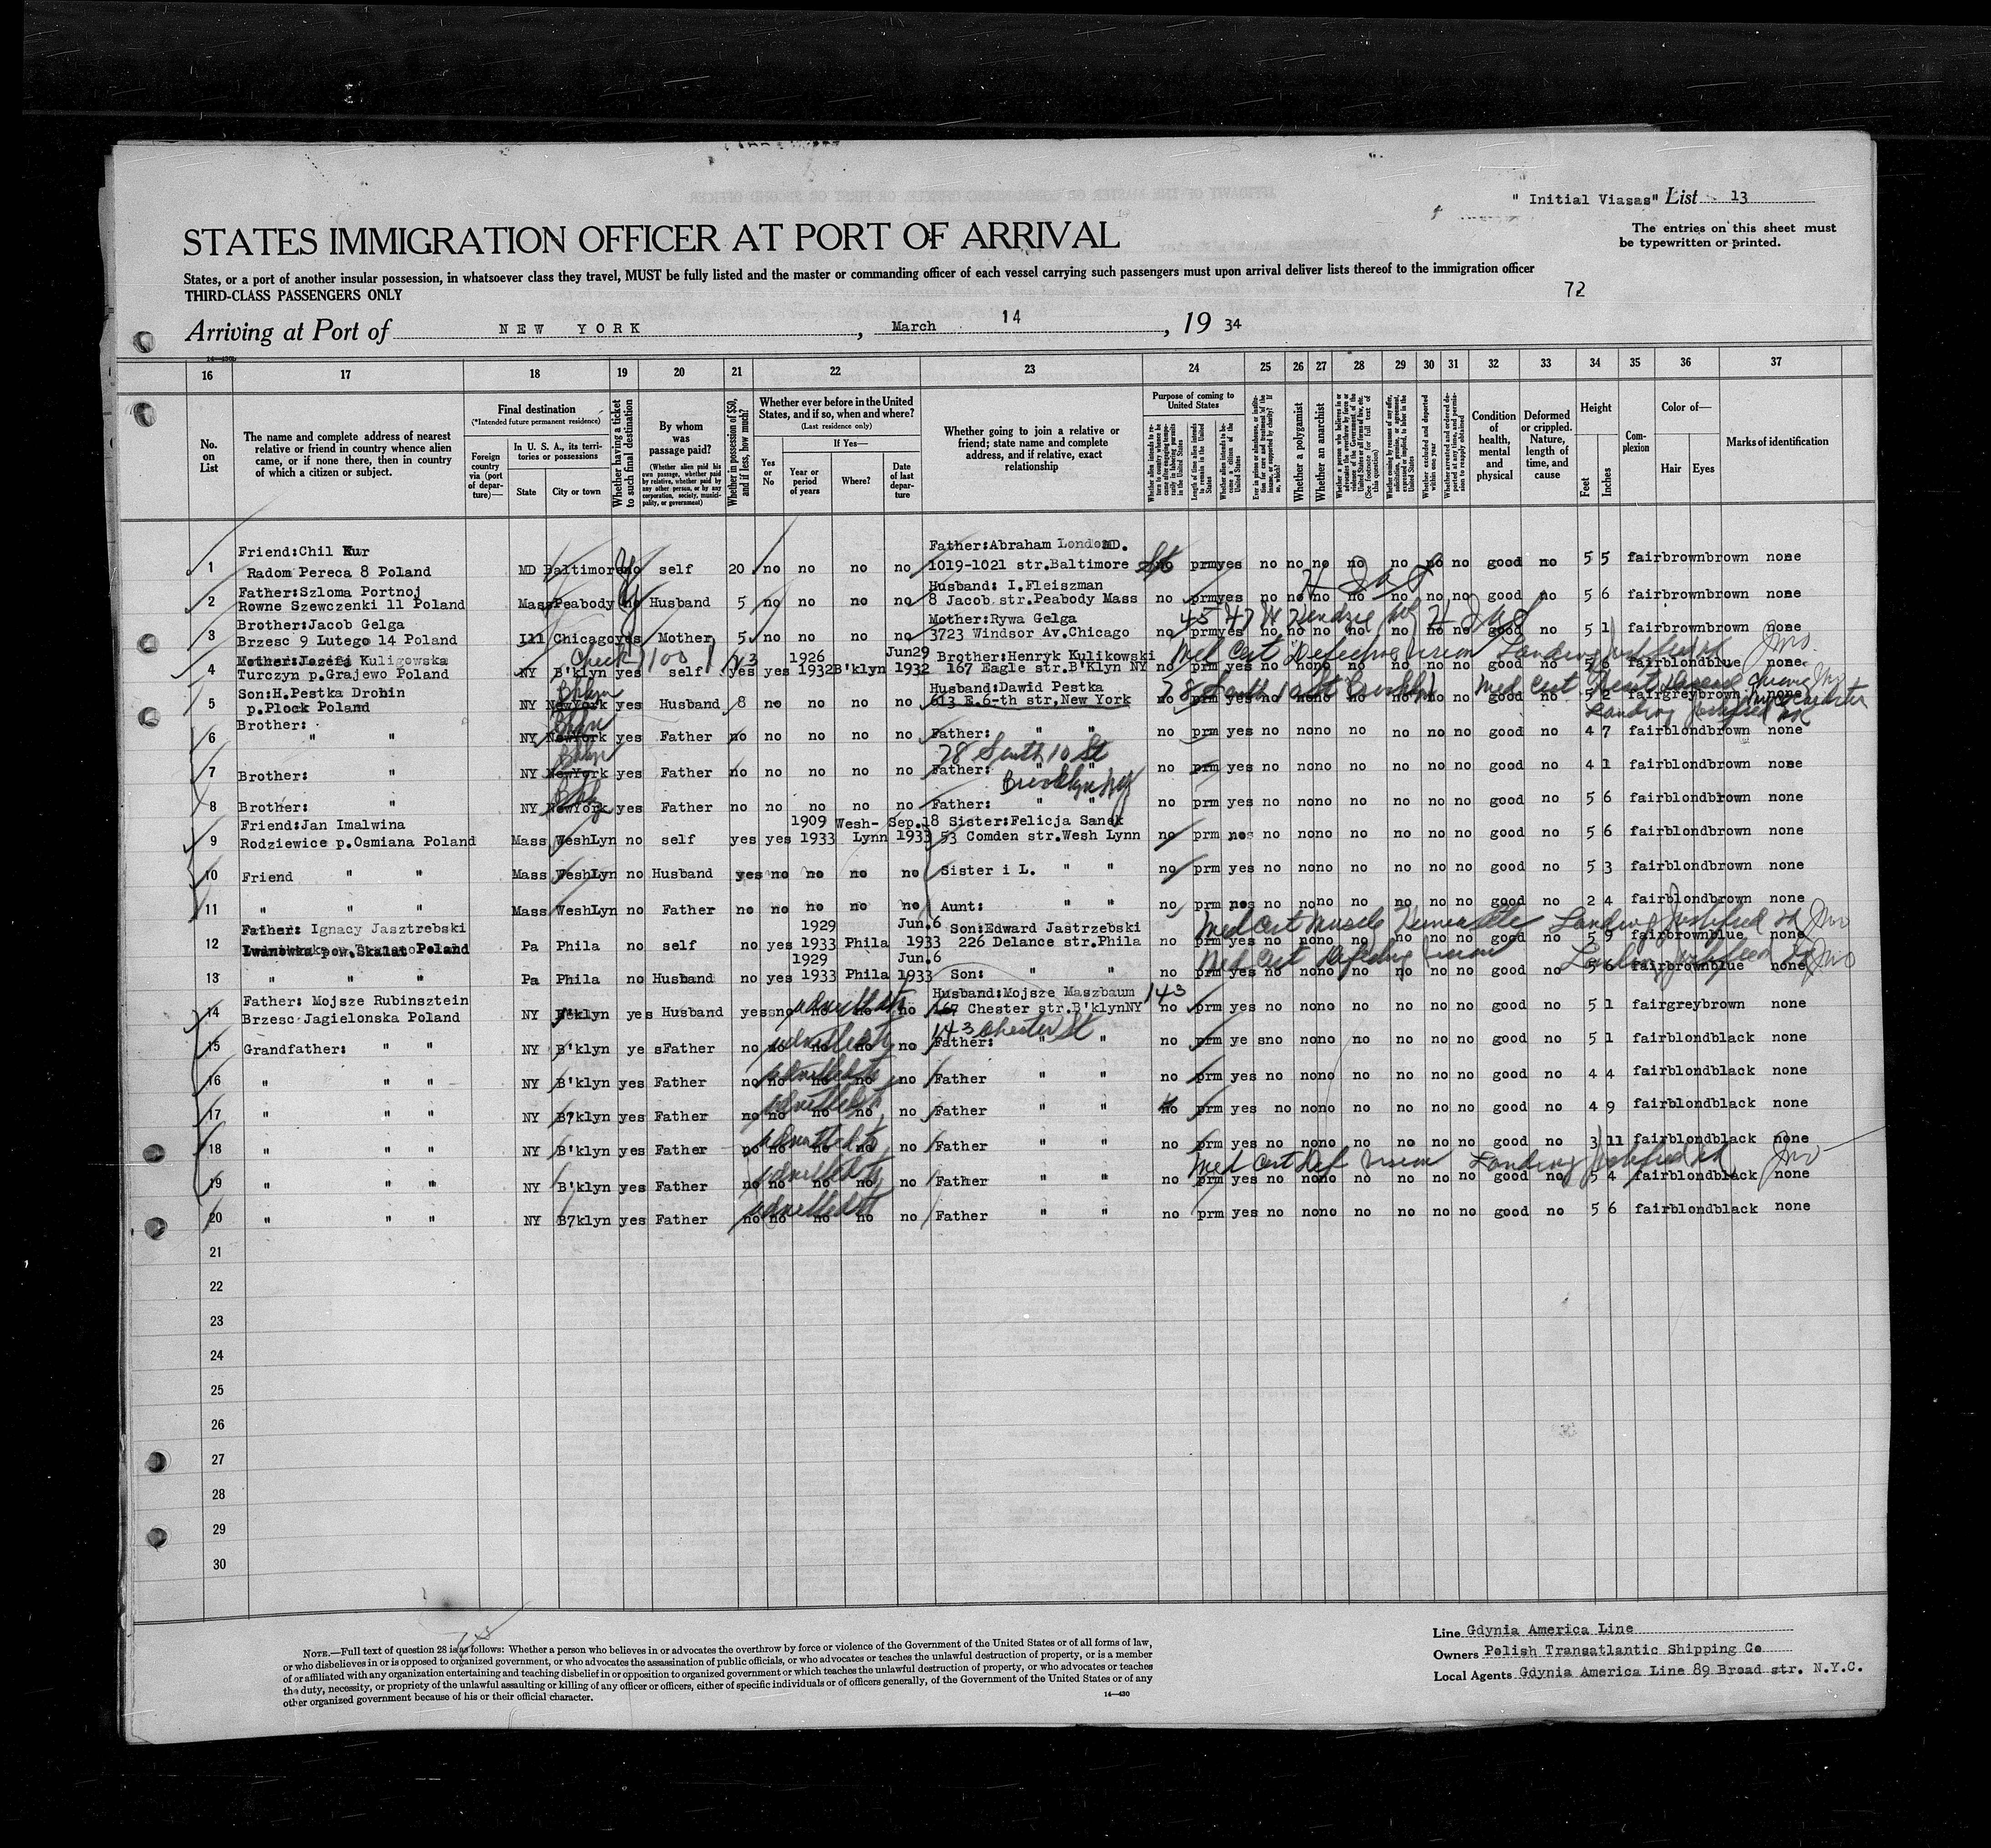 " Initial Viasas" List 13
STATES IMMIGRATION OFFICER AT PORT OF ARRIVAL
The entries on this sheet must
be typewritten or printed.
States, or a port of another insular possession, in whatsoever class they travel, MUST be fully listed and the master or commanding officer of each vessel carrying such passengers must upon arrival deliver lists thereof to the immigration officer
THIRD-CLASS PASSENGERS ONLY
72
Arriving at Port of NEW YORK, March 14, 19 34
16 17 18 19 20 21 22 23 24 25 26 27 28 29 30 31 32 33 34 35 36 37
No. on List
The name and complete address of nearest relative or friend in country whence alien came, or if none there, then in country of which a citizen or subject.
Final destination
(*Intended future permanent residence)
Foreign country via (port of departure)—
In U. S. A., its territories or possessions
State City or town
Whether having a ticket to such final destination
By whom was passage paid?
(Whether alien paid his own passage, whether paid by relative, whether paid by any other person, or by any corporation, society, municipality, or government)
Whether in possession of $50, and if less, how much?
Whether ever before in the United States, and if so, when and where?
(Last residence only)
Yes or No
If Yes—
Year or period of years Where? Date of last departure
Whether going to join a relative or friend; state name and complete address, and if relative, exact relationship
Purpose of coming to United States
Whether a polygamist
Whether an anarchist
Condition of health, mental and physical
Deformed or crippled. Nature, length of time, and cause
Height
Feet Inches
Complexion
Color of—
Hair Eyes
Marks of identification
Friend:Chil Kur Father:Abraham London MD.
1 Radom Pereca 8 Poland MD Baltimore no self 20 no no no no 1019-1021 str.Baltimore no prm yes no no no no no no no good no 5 5 fair brown brown none
Father:Szloma Portnoj Husband: I.Fleiszman
2 Rowne Szewczenki 11 Poland Mass Peabody no Husband 5 no no no no 8 Jacob str.Peabody Mass no prm yes no no no no no no no good no 5 6 fair brown brown none
Brother:Jacob Gelga Mother:Rywa Gelga
3 Brzesc 9 Lutego 14 Poland Ill Chicago yes Mother 5 no no no no 3723 Windsor Av.Chicago no prm yes no no no no no no no good no 5 1 fair brown brown none
Mother:Jozefa Kuligowska Check 100 1926 Jun29 Brother:Henryk Kulikowski Med Cert Defective vision Landing justified
4 Turczyn p.Grajewo Poland NY B'klyn yes self yes yes 1932 B'klyn 1932 167 Eagle str.B'Klyn NY no prm yes no no no no no no no good no 5 6 fair blond blue none
Son:H.Pestka Drobin Bklyn Husband:Dawid Pestka 78 South 10 St Brooklyn Med Cert
5 p.Plock Poland NY NewYork yes Husband 8 no no no no 613 E.6-th str,New York no prm yes no no no no no no no good no 5 2 fair grey brown none
Landing justified
Brother: Bklyn
6 " " NY NewYork yes Father no no no no no Father: " " no prm yes no no no no no no no good no 4 7 fair blond brown none
Bklyn 78 South 10 St
7 Brother: " NY NewYork yes Father no no no no no Father: " no prm yes no no no no no no no good no 4 1 fair blond brown none
Brooklyn NY
8 Brother: " NY NewYork yes Father no no no no no Father: " " no prm yes no no no no no no no good no 5 6 fair blond brown none
Friend:Jan Imalwina 1909 Wesh- Sep.18 Sister:Felicja Sanek
9 Rodziewice p.Osmiana Poland Mass WeshLyn no self yes yes 1933 Lynn 1933 53 Comden str.Wesh Lynn no prm no no no no no no no no good no 5 6 fair blond brown none
10 Friend " " Mass WeshLyn no Husband yes no no no no Sister i L. " " no prm yes no no no no no no no good no 5 3 fair blond brown none
11 " " " Mass WeshLyn no Father no no no no no Aunt: " " no prm no no no no no no no no good no 2 4 fair blond brown none
Father: Ignacy Jasztrebski 1929 Jun.6 Son:Edward Jastrzebski Med Cert Muscle Landing justified
12 Iwanowka pow.Skalat Poland Pa Phila no self no yes 1933 Phila 1933 226 Delance str.Phila no prm yes no no no no no no no good no 5 9 fair brown blue none
1929 Jun.6 Med Cert Defective vision Landing justified
13 " " " Pa Phila no Husband no yes 1933 Phila 1933 Son: " " no prm yes no no no no no no no good no 5 6 fair brown blue none
Father: Mojsze Rubinsztein Husband:Mojsze Maszbaum 143
14 Brzesc Jagielonska Poland NY B'klyn yes Husband yes no no no no 167 Chester str.B'klynNY no prm yes no no no no no no no good no 5 1 fair grey brown none
143 Chester St
15 Grandfather: " " NY B'klyn yes Father no no no no no Father: " " no prm yes no no no no no no no good no 5 1 fair blond black none
16 " " " NY B'klyn yes Father no no no no no Father " " no prm yes no no no no no no no good no 4 4 fair blond black none
17 " " " NY B7klyn yes Father no no no no no Father " " no prm yes no no no no no no no good no 4 9 fair blond black none
18 " " " NY B'klyn yes Father no no no no no Father " " no prm yes no no no no no no no good no 3 11 fair blond black none
Med Cert Def vision Landing justified
19 " " " NY B'klyn yes Father no no no no no Father " " no prm yes no no no no no no no good no 5 4 fair blond black none
20 " " " NY B7klyn yes Father no no no no no Father " " no prm yes no no no no no no no good no 5 6 fair blond black none
21
22
23
24
25
26
27
28
29
30
NOTE.—Full text of question 28 is as follows: Whether a person who believes in or advocates the overthrow by force or violence of the Government of the United States or of all forms of law,
or who disbelieves in or is opposed to organized government, or who advocates the assassination of public officials, or who advocates or teaches the unlawful destruction of property, or is a member
of or affiliated with any organization entertaining and teaching disbelief in or opposition to organized government or which teaches the unlawful destruction of property, or who advocates or teaches
the duty, necessity, or propriety of the unlawful assaulting or killing of any officer or officers, either of specific individuals or of officers generally, of the Government of the United States or of any
other organized government because of his or their official character.
14—430
Line Gdynia America Line
Owners Polish Transatlantic Shipping Co
Local Agents Gdynia America Line 89 Broad str. N.Y.C.